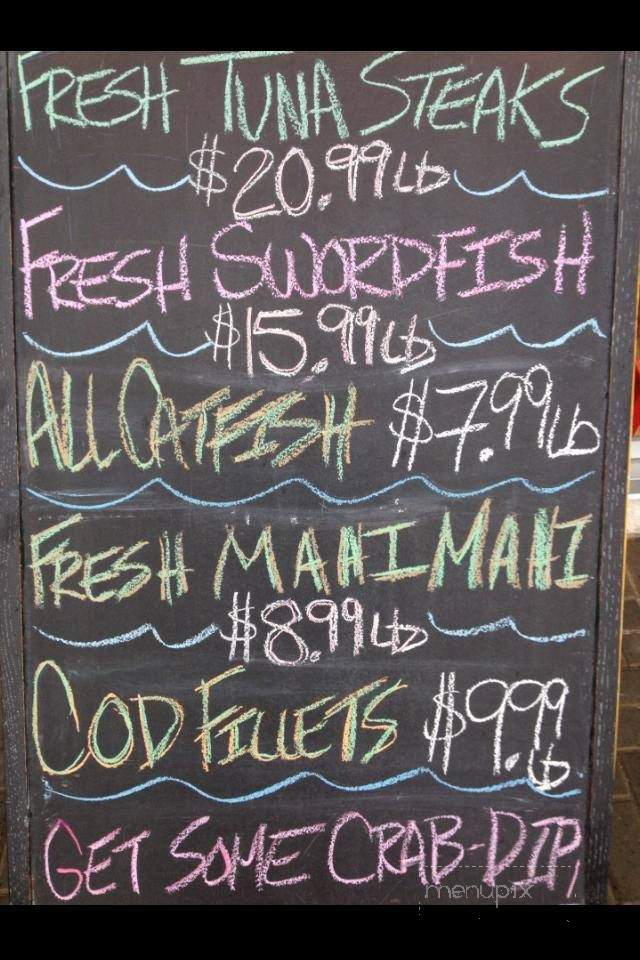 FRESH TUNA STEAKS
$20.99 Lb
FRESH SWORDFISH
$15.99 Lb
ALL CATFISH $7.99 Lb
FRESH MAHI MAHI
$8.99 Lb
COD FILLETS $9.99 Lb
GET SOME CRAB-DIP,
menupix